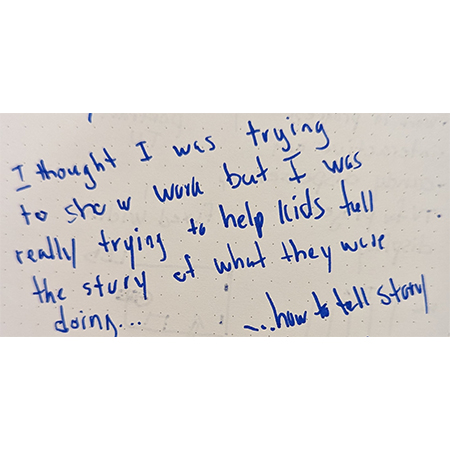 I thought I was trying
to show work but I was
really trying to help kids tell
the story of what they were
doing...
...how to tell story